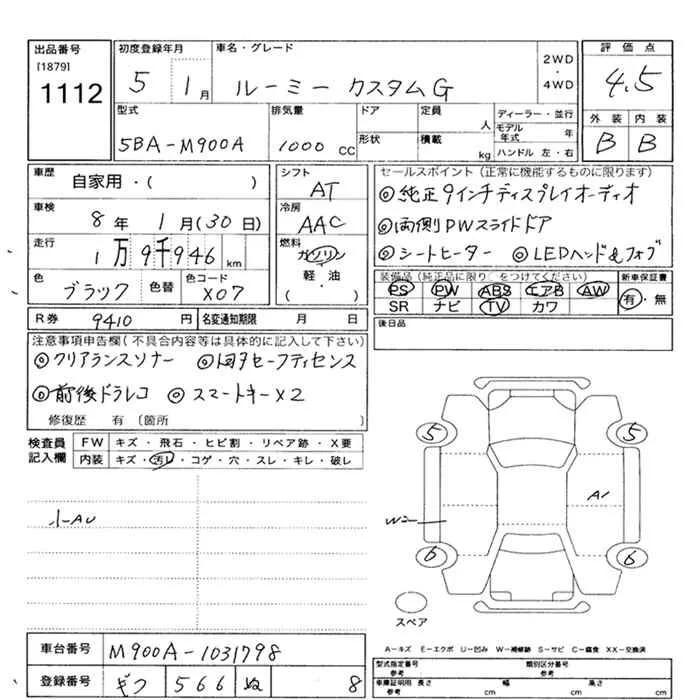 出品番号
[1879]
1112
初度登録年月
5 1月
車名・グレード
ルーミー カスタムG
2WD
・
4WD
評価点
4.5
外装 内装
B B
型式
5BA-M900A
排気量
1000 CC
ドア
形状
定員
人
積載
kg
ディーラー・並行
モデル
年式 年
ハンドル 左・右
車歴
自家用・( )
車検
8年 1月(30日)
走行
1万9千946km
色
ブラック
色替
色コード
X07
シフト
AT
冷房
AAC
燃料
ガソリン
軽・油
( )
セールスポイント(正常に機能するものに限ります)
◎純正9インチディスプレイオーディオ
◎両側PWスライドドア
◎シートヒーター ◎LEDヘッド&フォグ
装備品(純正品に限り○をつけてください)
PS PW ABS エアB AW
SR ナビ TV カワ
新車保証書
有・無
R券 9410円
名変通知期限 月 日
後日品
注意事項申告欄(不具合内容等は具体的に記入して下さい)
◎クリアランスソナー ◎トヨタセーフティセンス
◎前後ドラレコ ◎スマートキーX2
修復歴 有(箇所 )
検査員
記入欄
FW キズ・飛石・ヒビ割・リペア跡・X要
内装 キズ・汚レ・コゲ・穴・スレ・キレ・破レ
小AU
5 5
A1
W2
6 6
スペア
車台番号 M900A-1031798
登録番号 ギフ 566 ぬ 8
A-キズ E-エクボ U-凹み W-補修跡 S-サビ C-腐食 XX-交換済
型式指定番号
参考
類別区分番号
参考
車庫証明用
参考
長さ cm 幅 cm 高さ cm